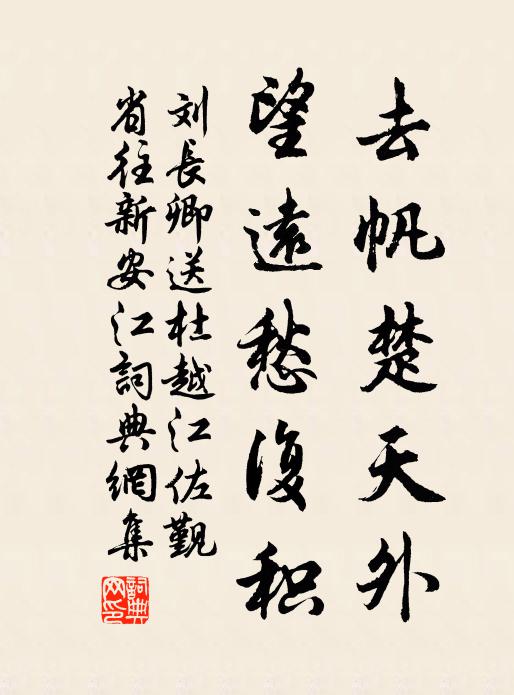 去帆楚天外
望遠愁復积
刘長卿送杜越江佐觐
省往新安江詞典網集
詞典网印